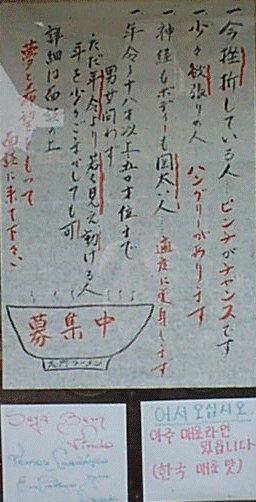 一 今挫折している人…ピンチがチャンスです
一 少々欲張りの人 ハングリーがあります
一 神経もボディーも図太い人…適度に変身します
一 年令十八才以上五〇才位まで
男女問わず
ただ年令より若く見え動ける人
年を少々ごまかしても可
詳細は面談の上
夢と希望をもって
面談に来て下さい
募集中
어서 오십시오.
아주 매운라면
있읍니다
(한국 매운 맛)